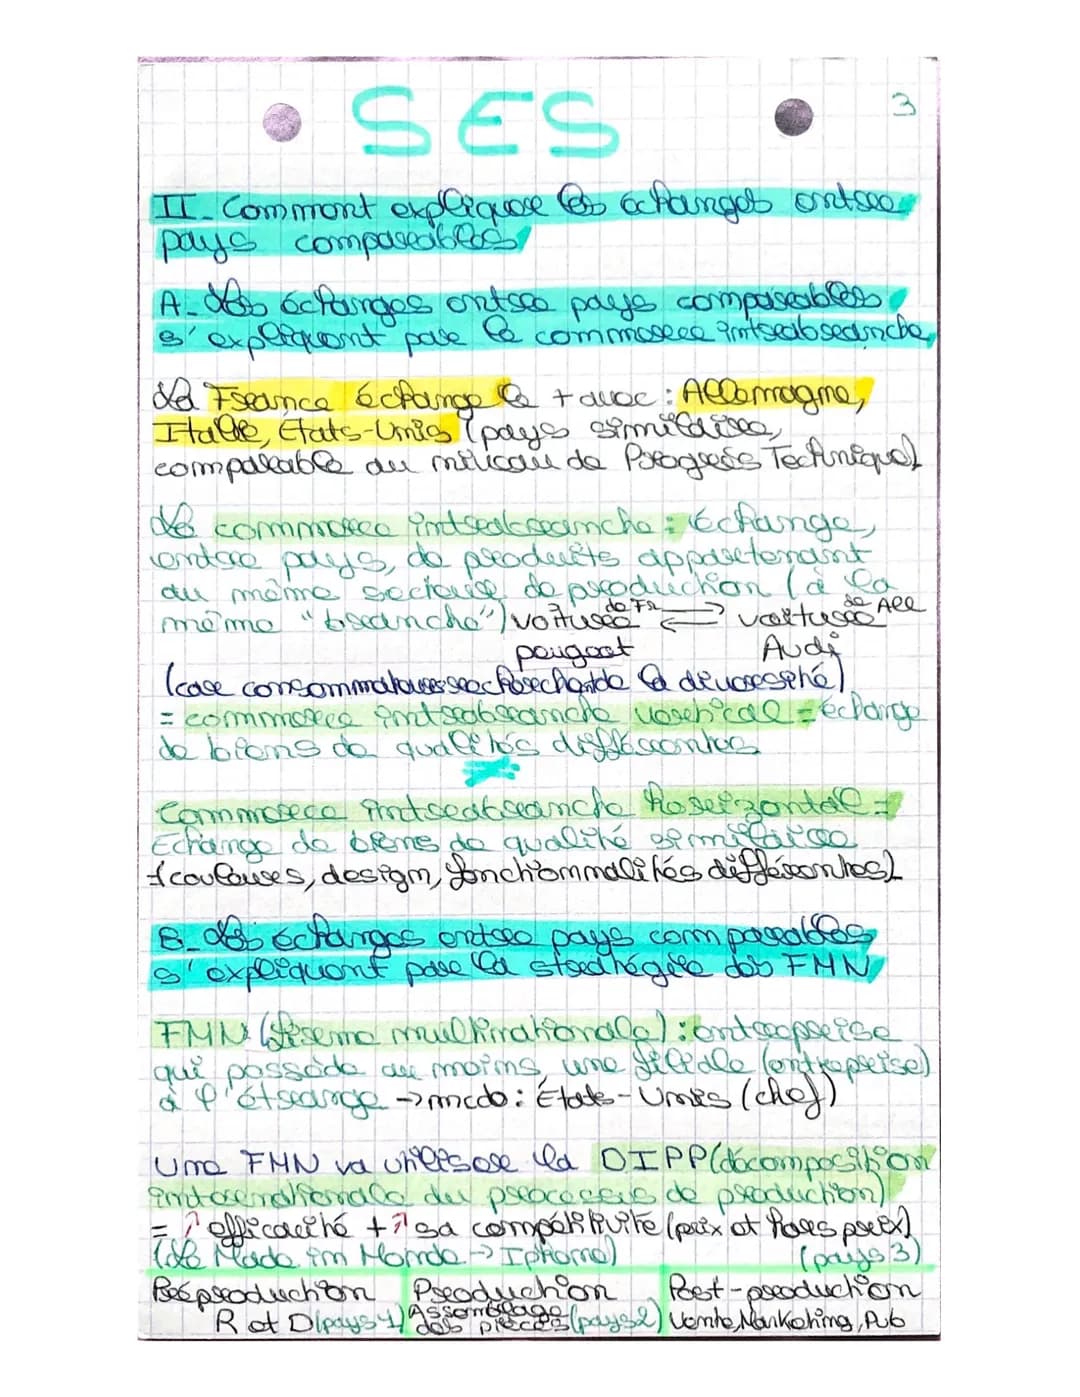 SES
3
II_ Comment expliquer les échanges entre
pays comparables
A_ Les échanges entre pays comparables
s'expliquent par le commerce intrabranche
La France échange le + avec : Allemagne,
Italie, États-Unis (pays similaire,
comparable au niveau de Progrès Technique)
Le commerce intrabranche : Échange,
entre pays, de produits appartenant
au même secteur de production (à la
même "branche") voiture de Fr ⇄ voiture de All
peugeot Audi
(car consommateurs recherche de la diversité)
= commerce intrabranche vertical = échange
de biens de qualités différentes
Commerce intrabranche horizontal =
Echange de biens de qualité similaire
(couleurs, design, fonctionnalités différentes)
B_ Les échanges entre pays comparables
s'expliquent par la stratégie des FMN
FMN (firme multinationale) : entreprise
qui possède au moins une filiale (entreprise)
à l'étrange -> mcdo : États-Unis (chef)
Une FMN va utiliser la DIPP (décomposition
internationale du processus de production)
= ↗ efficacité + ↗ sa compétitivité (prix et hors prix)
(Le Made in Monde -> Iphone) (pays 3)
Préproduction Production Post-production
R et D (pays 1) Assemblage des pièces (pays 2) Vente, Marketing, Pub